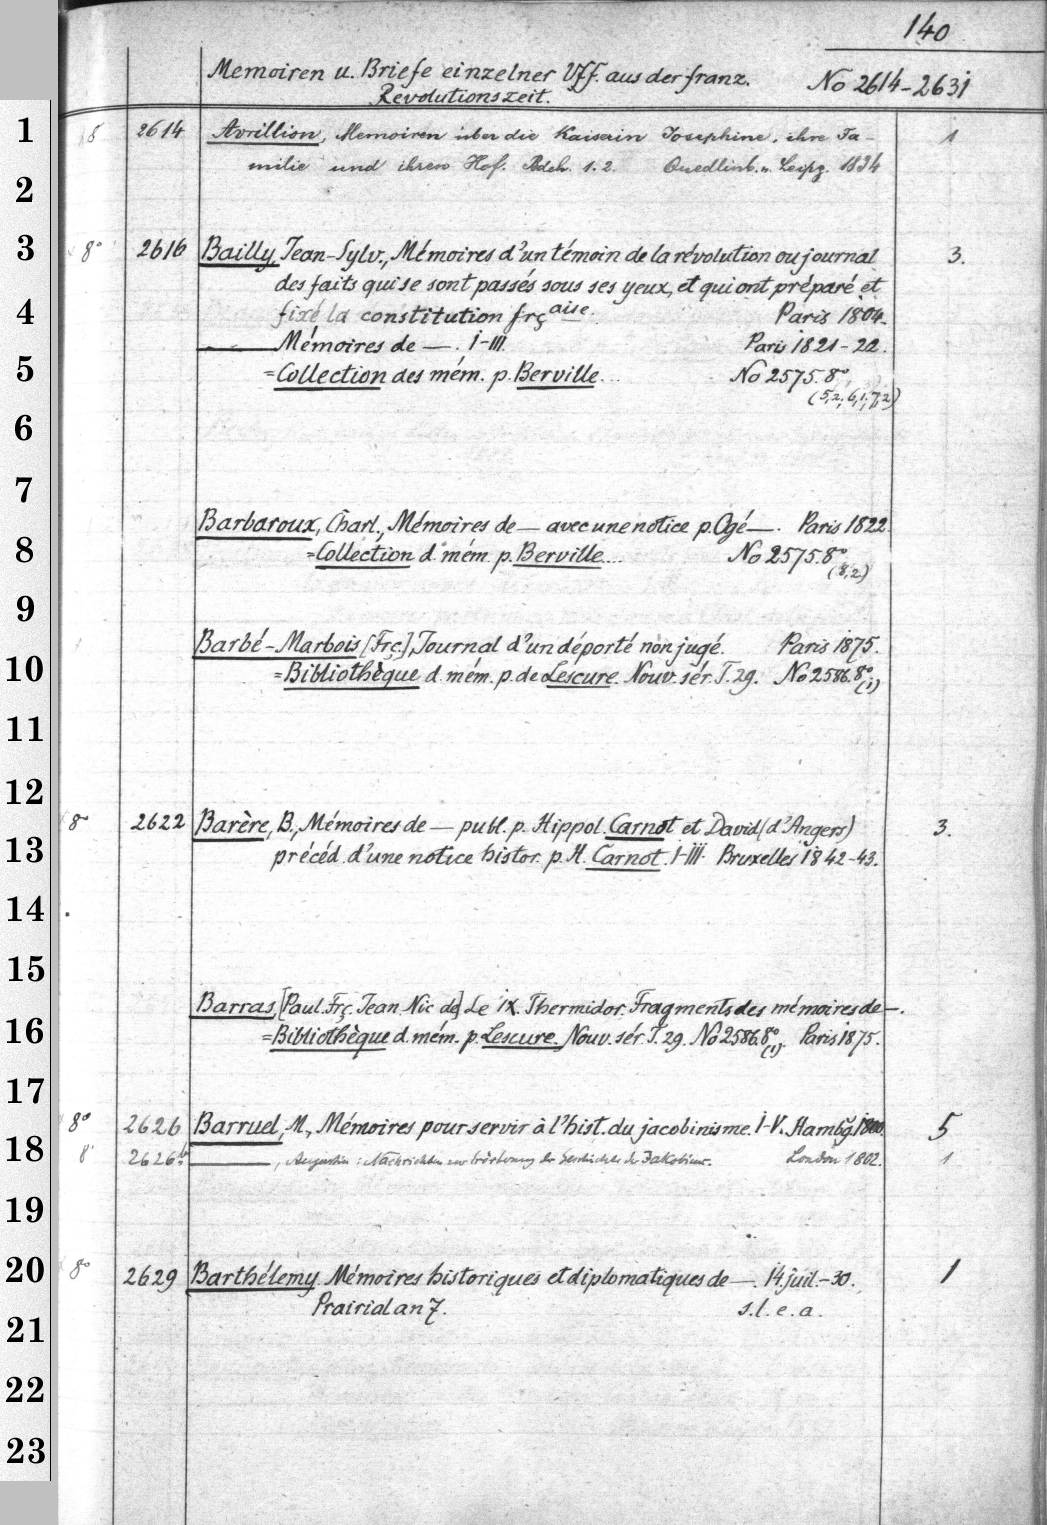 140
Memoiren u. Briefe einzelner Vff. aus der franz. No 2614-2631
Revolutionszeit.
1 8 2614 Avrillion, Memoiren über die Kaiserin Josephine, ihre Fa- 1
milie und ihren Hof. Bdch. 1. 2. Quedlinb. u. Leipz. 1834
2
3 8° 2616 Bailly, Jean-Sylv., Mémoires d'un témoin de la révolution ou journal 3.
des faits qui se sont passés sous ses yeux, et qui ont préparé et
4 fixé la constitution frçaise. Paris 1804.
— Mémoires de —. I-III. Paris 1821-22.
5 =Collection des mém. p. Berville... No 2575.8°.
(5,2; 6,1; 7,2)
6
7
Barbaroux, Charl., Mémoires de — avec une notice p. Ogé —. Paris 1822.
8 =Collection d. mém. p. Berville.... No 2575.8°
(8,2)
9
Barbé-Marbois [Frç.], Journal d'un déporté non jugé. Paris 1875.
10 =Bibliothèque d. mém. p. de Lescure. Nouv. sér. T. 29. No 2586.8°
(1)
11
12
8° 2622 Barère, B., Mémoires de — publ. p. Hippol. Carnot et David (d'Angers) 3.
13 précéd. d'une notice histor. p. H. Carnot. I-III. Bruxelles 1842-43.
14
15
Barras, [Paul. Frç. Jean Nic de] Le IX. Thermidor. Fragments des mémoires de —.
16 =Bibliothèque d. mém. p. Lescure. Nouv. sér. T. 29. No 2586.8° Paris 1875.
(1).
17
8° 2626 Barruel, M., Mémoires pour servir à l'hist. du jacobinisme. I-V. Hambg. 1800. 5
18 8° 2626b —, Augustin: Nachrichten zur Erörterung der Geschichte der Jakobiner. London 1802. 1
19
20 8° 2629 Barthélemy. Mémoires historiques et diplomatiques de —. 14. juil.-30. 1
Prairial an 7. s. l. e. a.
21
22
23